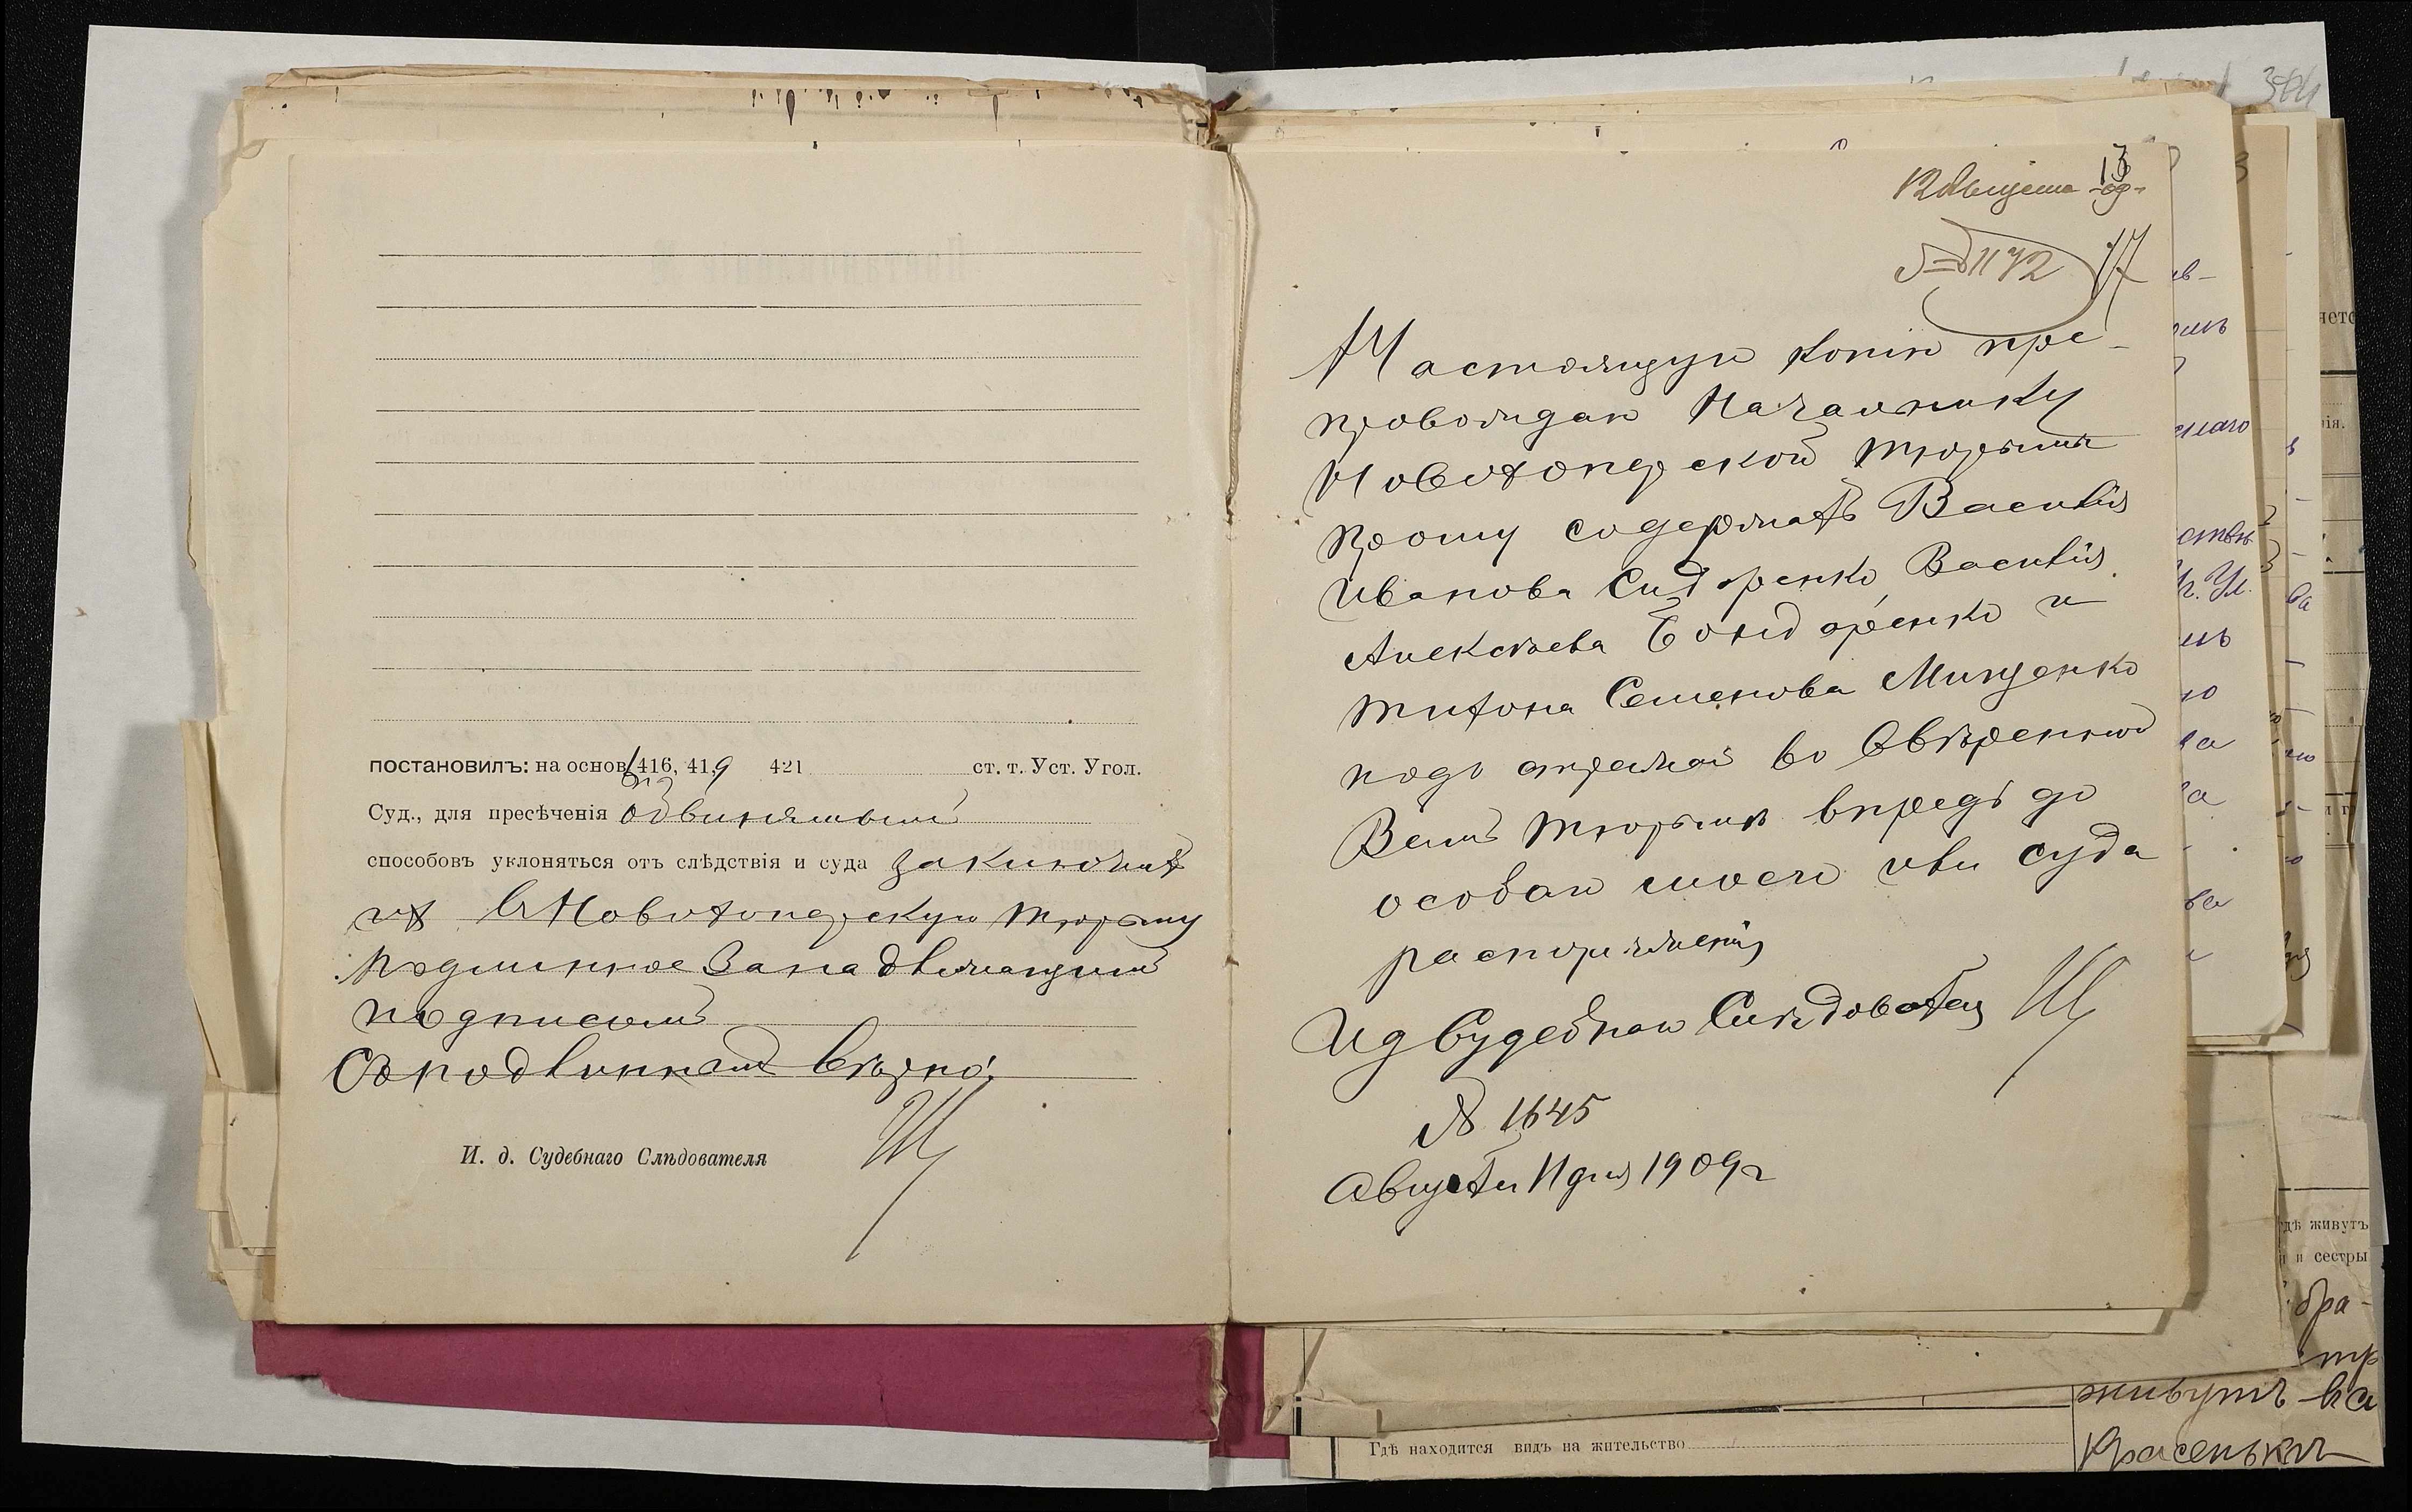 постановилъ: на основ. 416, 419 421 ст. т. Уст. Угол.
Суд., для пресѣченія обвиняемымъ
способовъ уклоняться отъ слѣдствія и суда заключить
их въ Новохоперскую тюрьму
Подлинное за надлежащимъ
подписомъ
Съ подлиннымъ вѣрно:
И. д. Судебнаго Слѣдователя
13
12 Августа 09
№ 1172 17
Настоящую копію пре-
провождаю Начальнику
Новохоперской тюрьмы
Прошу содержать Василія
Иванова Сидоренко, Василія
Алексѣева Бондаренко и
Тихона Семенова Мищенко
подъ стражей во ввѣренной
Вамъ тюрьмѣ впредь до
особаго моего или суда
распоряженія
И д Судебнаго Слѣдователя
№ 1645
Августа 11 дня 1909 г
ів-
снаго
ва
нетс
нія.
дѣ живутъ
и и сестры
бра-
тр
живутъ на
Гдѣ находится видъ на жительство